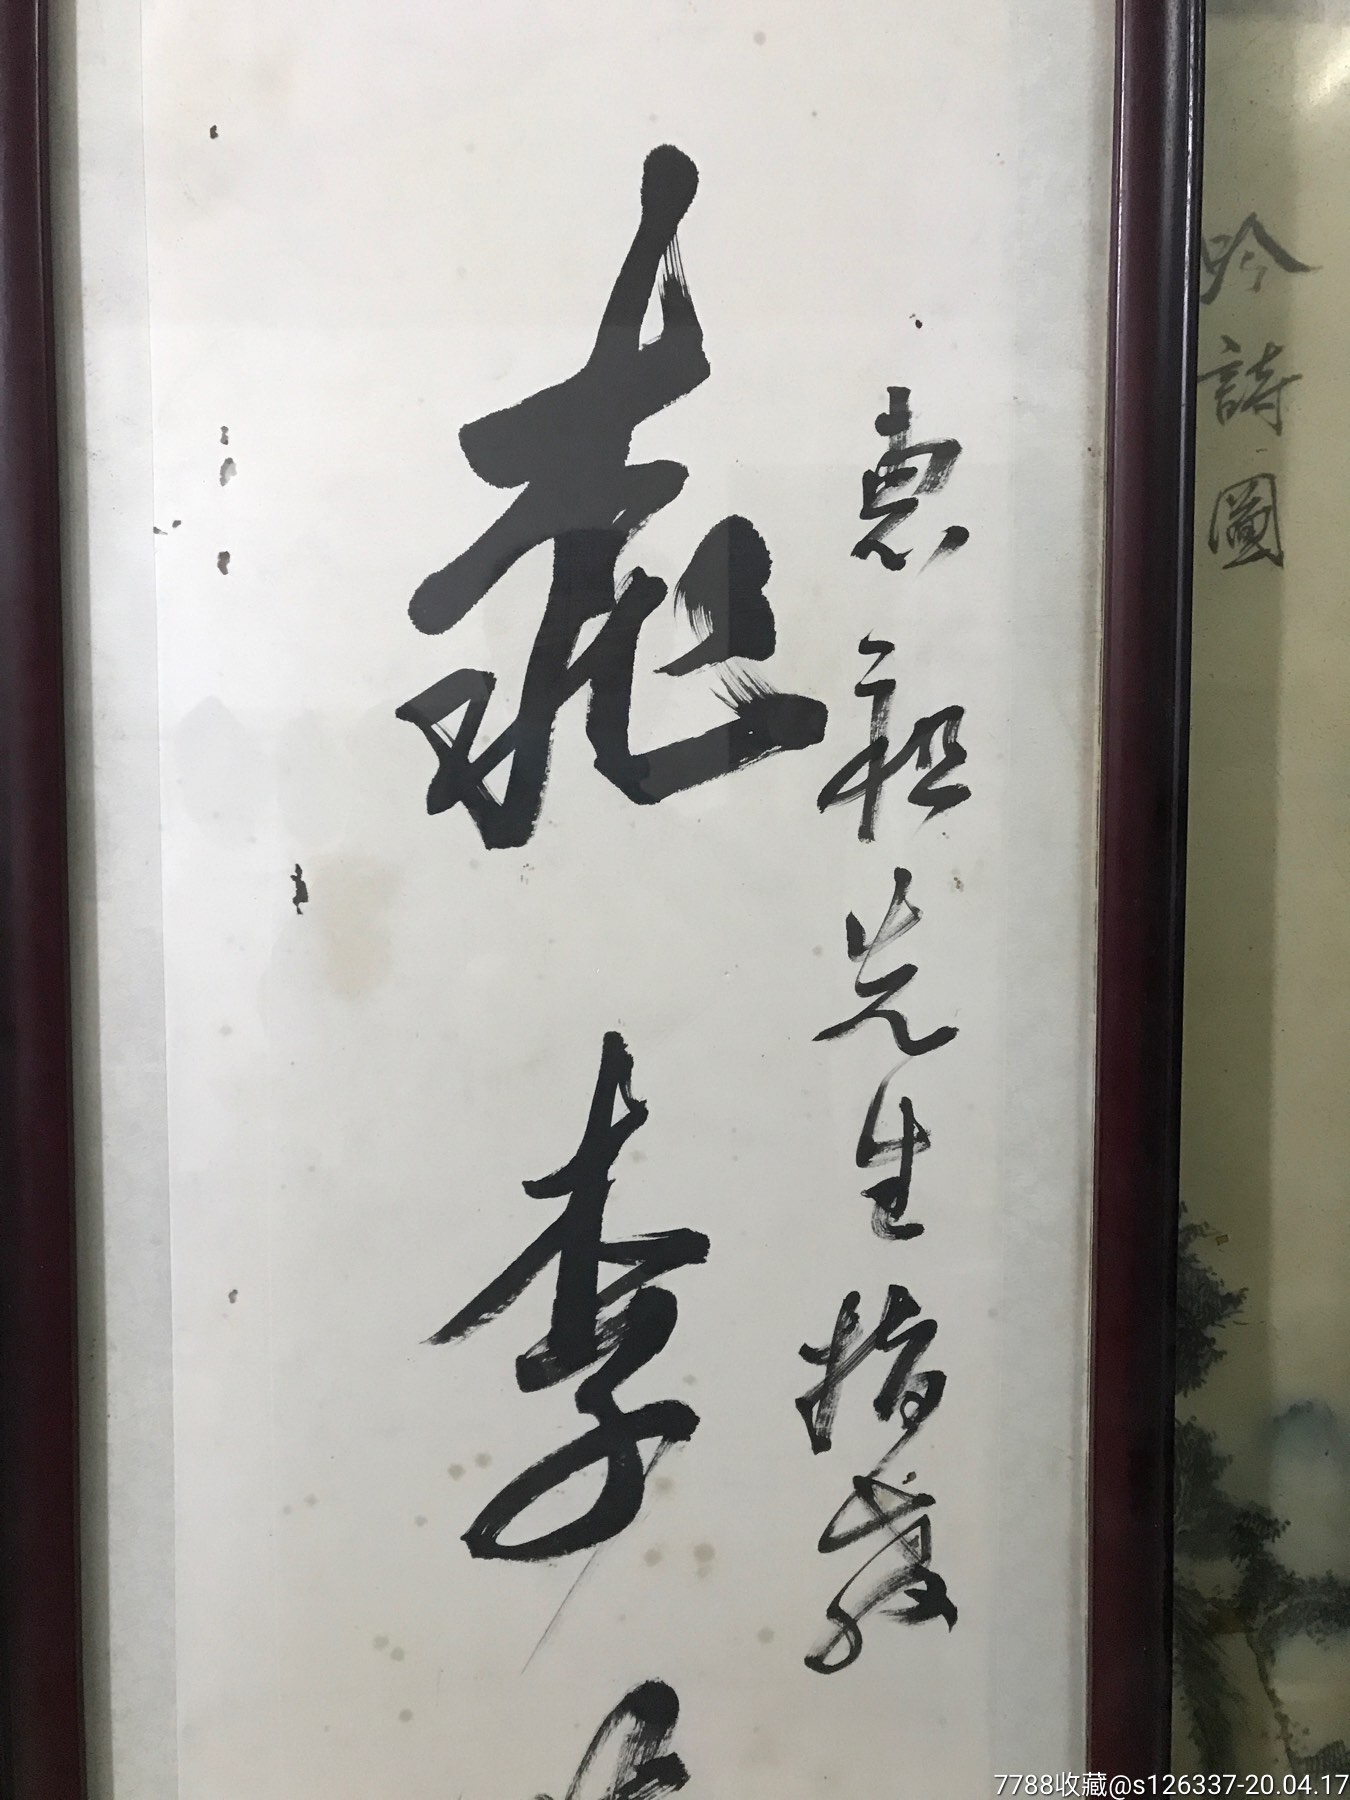 吟詩圖
惠祖先生指教
桃李
7788收藏@s126337-20.04.17